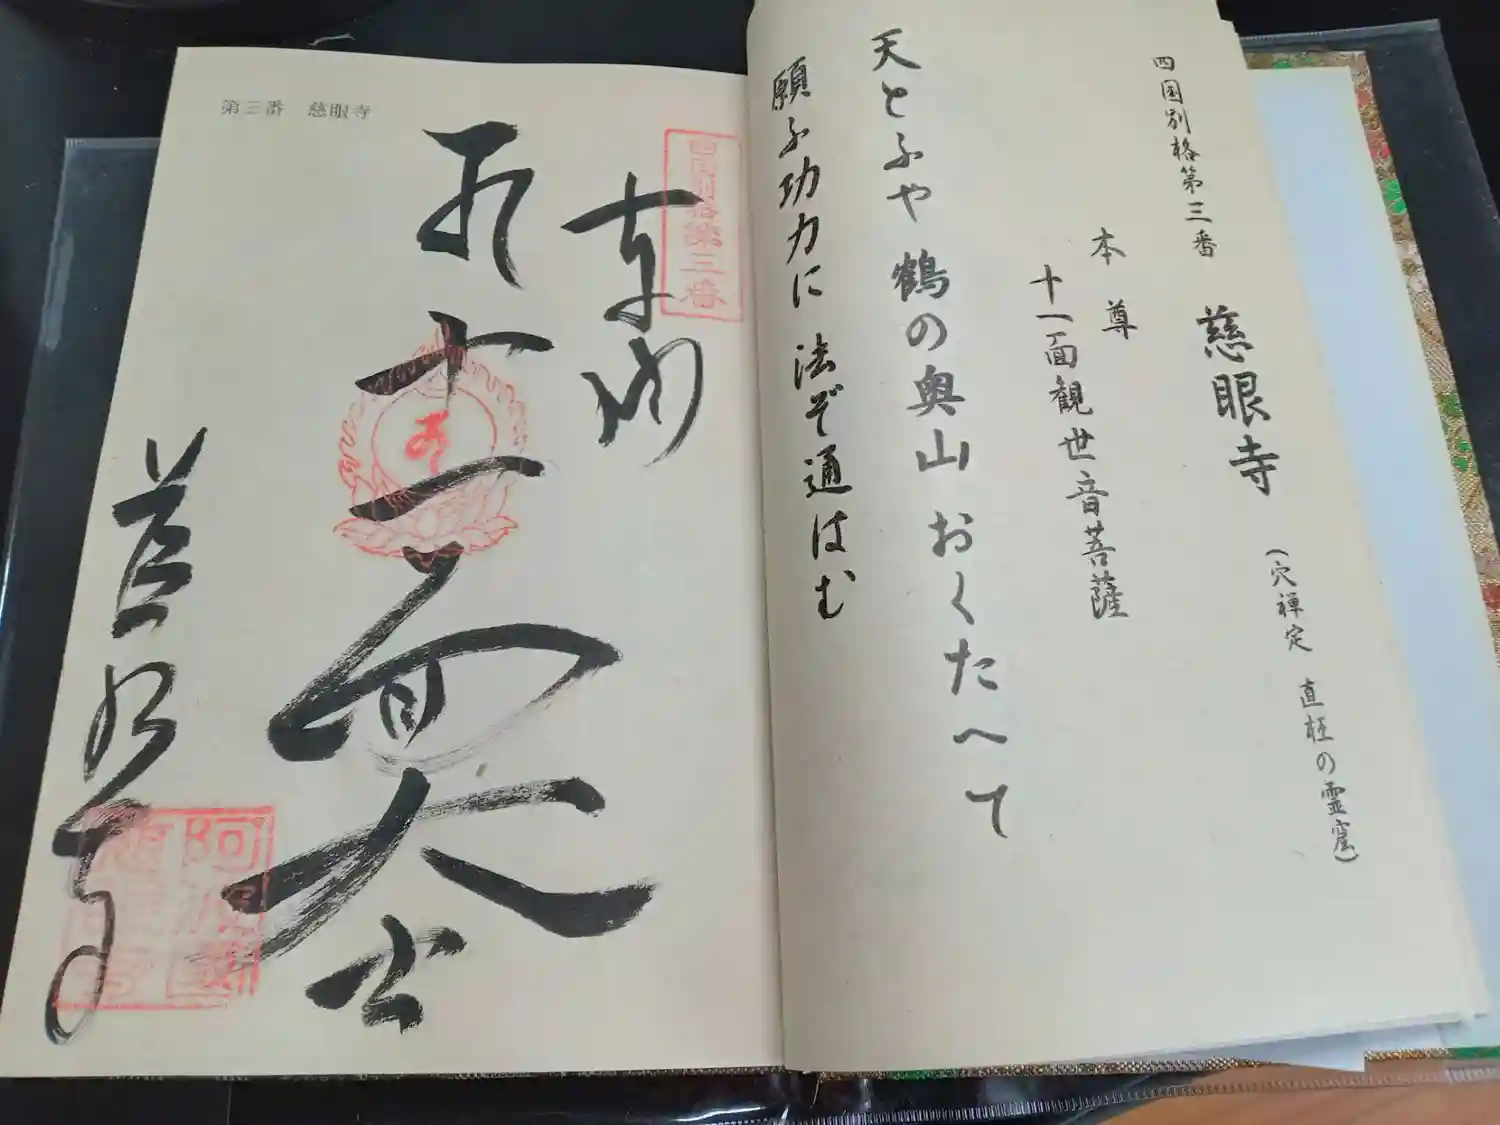 四国別格第三番 慈眼寺 (穴禅定 直枉の霊窟)
本尊
十一面観世音菩薩
天とふや 鶴の奥山 おくたへて
願ふ功力に 法ぞ通はむ
第三番 慈眼寺
四国別格第三番
奉納
十一面
慈眼寺